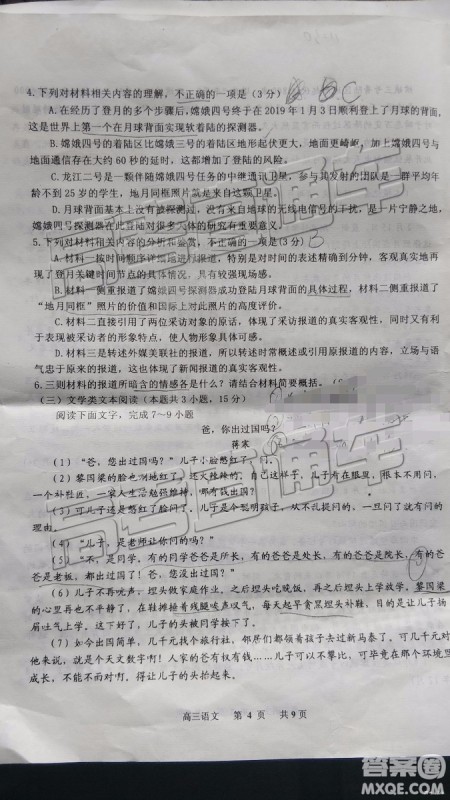 4.下列对材料相关内容的理解，不正确的一项是(3 分)
A.在经历了登月的多个步骤后，嫦娥四号终于在 2019 年 1 月 3 日顺利登上了月球的背面，
这是世界上第一个在月球背面实现软着陆的探测器。
B.嫦娥四号的着陆区与嫦娥三号的着陆区地形起伏更大、地面更崎岖，加上嫦娥四号与
地面通信存在大约 60 秒的延时，这都增加了登陆的风险。
C.龙江二号是一颗伴随嫦娥四号任务的中继通讯卫星，参与其
到 25 岁的学生，地月同框照片就是来自这颗卫星。
D.月球背面基本上没有被探测过，没有来自地球的无线电信号的干扰，是一片宁静之地，
嫦娥四号在此登陆对很多天体的研究有重要意义。
5.下列对材料相关内容的分析和鉴赏，不正确的一项是(3 分)
A.材料一按时间顺序详细地进行报道，特别是对时间的表述精确到分钟，客观真实地再
现了登月关键时间节点的具体情况，体现了报道的真实性。
B.材料一侧重报道了嫦娥四号探测器成功登陆月球背面的具体过程，材料二侧重报道了
“地月同框”照片的价值和国际上对此的高度评价。
C.材料二直接引用了两位采访对象的原话，体现了采访报道的真实客观性，同时也有助
于展现被采访者的形象特点，使人物形象具体可感。
D.材料三是转述外媒关联社的报道，所以行文就要注意体现原报道的态度、立场，内容与语气
忠于原来的报道，这也体现了新闻报道的真实客观性。
6.三则材料的报道所暗含的情感各是什么？请结合材料简要概括。
(三) 文学类文本阅读 (本题共 3 小题，15 分)
阅读下面文字，完成 7～9 小题
爸，你出过国吗？
蒋寒
(1)“爸，您出过国吗？”儿子小脸憋红了
(2) 黎国梁的脸也唰地红了，还火辣辣的。自己这样子，儿子看在眼里，根本不用问，
一个补鞋匠，一家人生活勉强维持，哪有钱出国？
(3) 可儿子为什么要憋红了脸问了、儿子是个聪明孩子，从小不乱提问，问了一定有问的
理由。
(4)“儿子，是老师让你问的吗？”
(5)“不，是同学，有的同学爸爸是所长，有的爸爸是处长，有的爸爸是院长，有的爸
爸是老板，都出过国！爸，您出过国吗？”
(6) 儿子不再吭声，埋头做家庭作业，之后埋头吃晚饭，再之后埋头上学放学，黎国梁
的心里就像埋了一颗炸弹，在鞋摊操着残腿唉声叹气，每天起早贪黑埋头补鞋，目的是让儿子扬
眉吐气上学，可是，儿子的头被同学压下来了。
(7) 如今出国简单，几千元找个旅行社，邻居居民都出国了新马泰了。可几千元对
他来说，就是个天文数字啊！人家的爸爸有权有钱……可是儿子无罪，不能在那个环境里
成长啊！不行，得让儿子的头抬起来。
高三语文 第 4 页 共 9 页